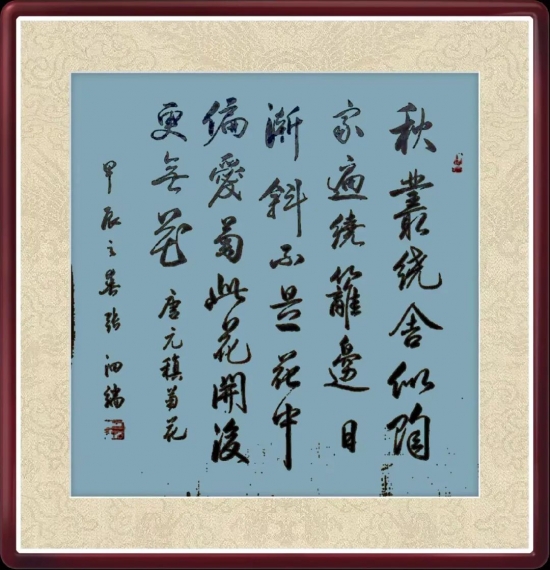 秋叢繞舍似陶
家遍繞籬邊日
漸斜不是花中
偏愛菊此花開後
更無花 唐元稹菊花
甲辰之暑張泗瑞